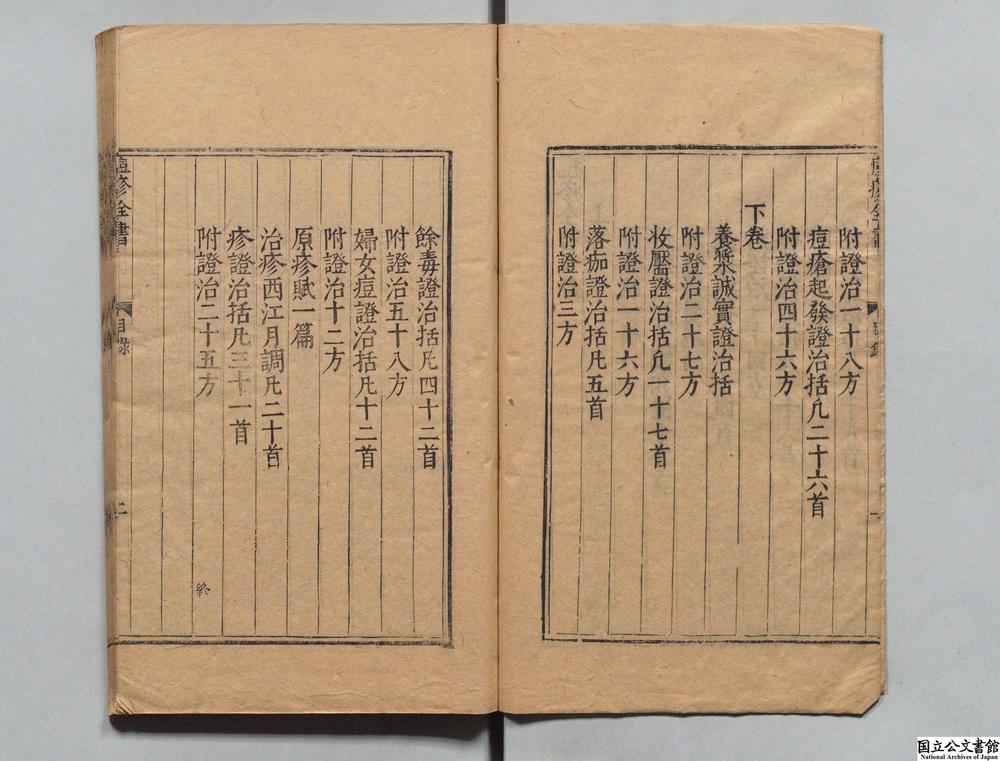 附證治一十八方
痘瘡起發證治括凡二十六首
附證治四十六方
下卷
養漿誠實證治括
附證治二十七方
收靨證治括凡一十七首
附證治一十六方
落痂證治括凡五首
附證治三方
餘毒證治括凡四十二首
附證治五十八方
婦女痘證治括凡十二首
附證治十二方
原疹賦一篇
治疹西江月調凡二十首
疹證治括凡三十一首
附證治二十五方
終
痘疹全書
目錄
二
痘疹全書
目錄
一
国立公文書館
National Archives of Japan